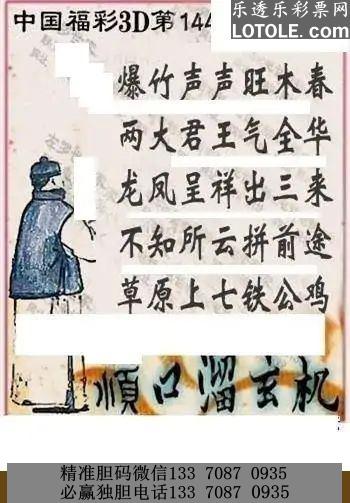 中国福彩3D第144
乐透乐彩票网
LOTOLE.COM
爆竹声声旺木春
两大君王气全华
龙凤呈祥出三来
不知所云拼前途
草原上七铁公鸡
顺口溜玄机
精准胆码微信133 7087 0935
必赢独胆电话133 7087 0935